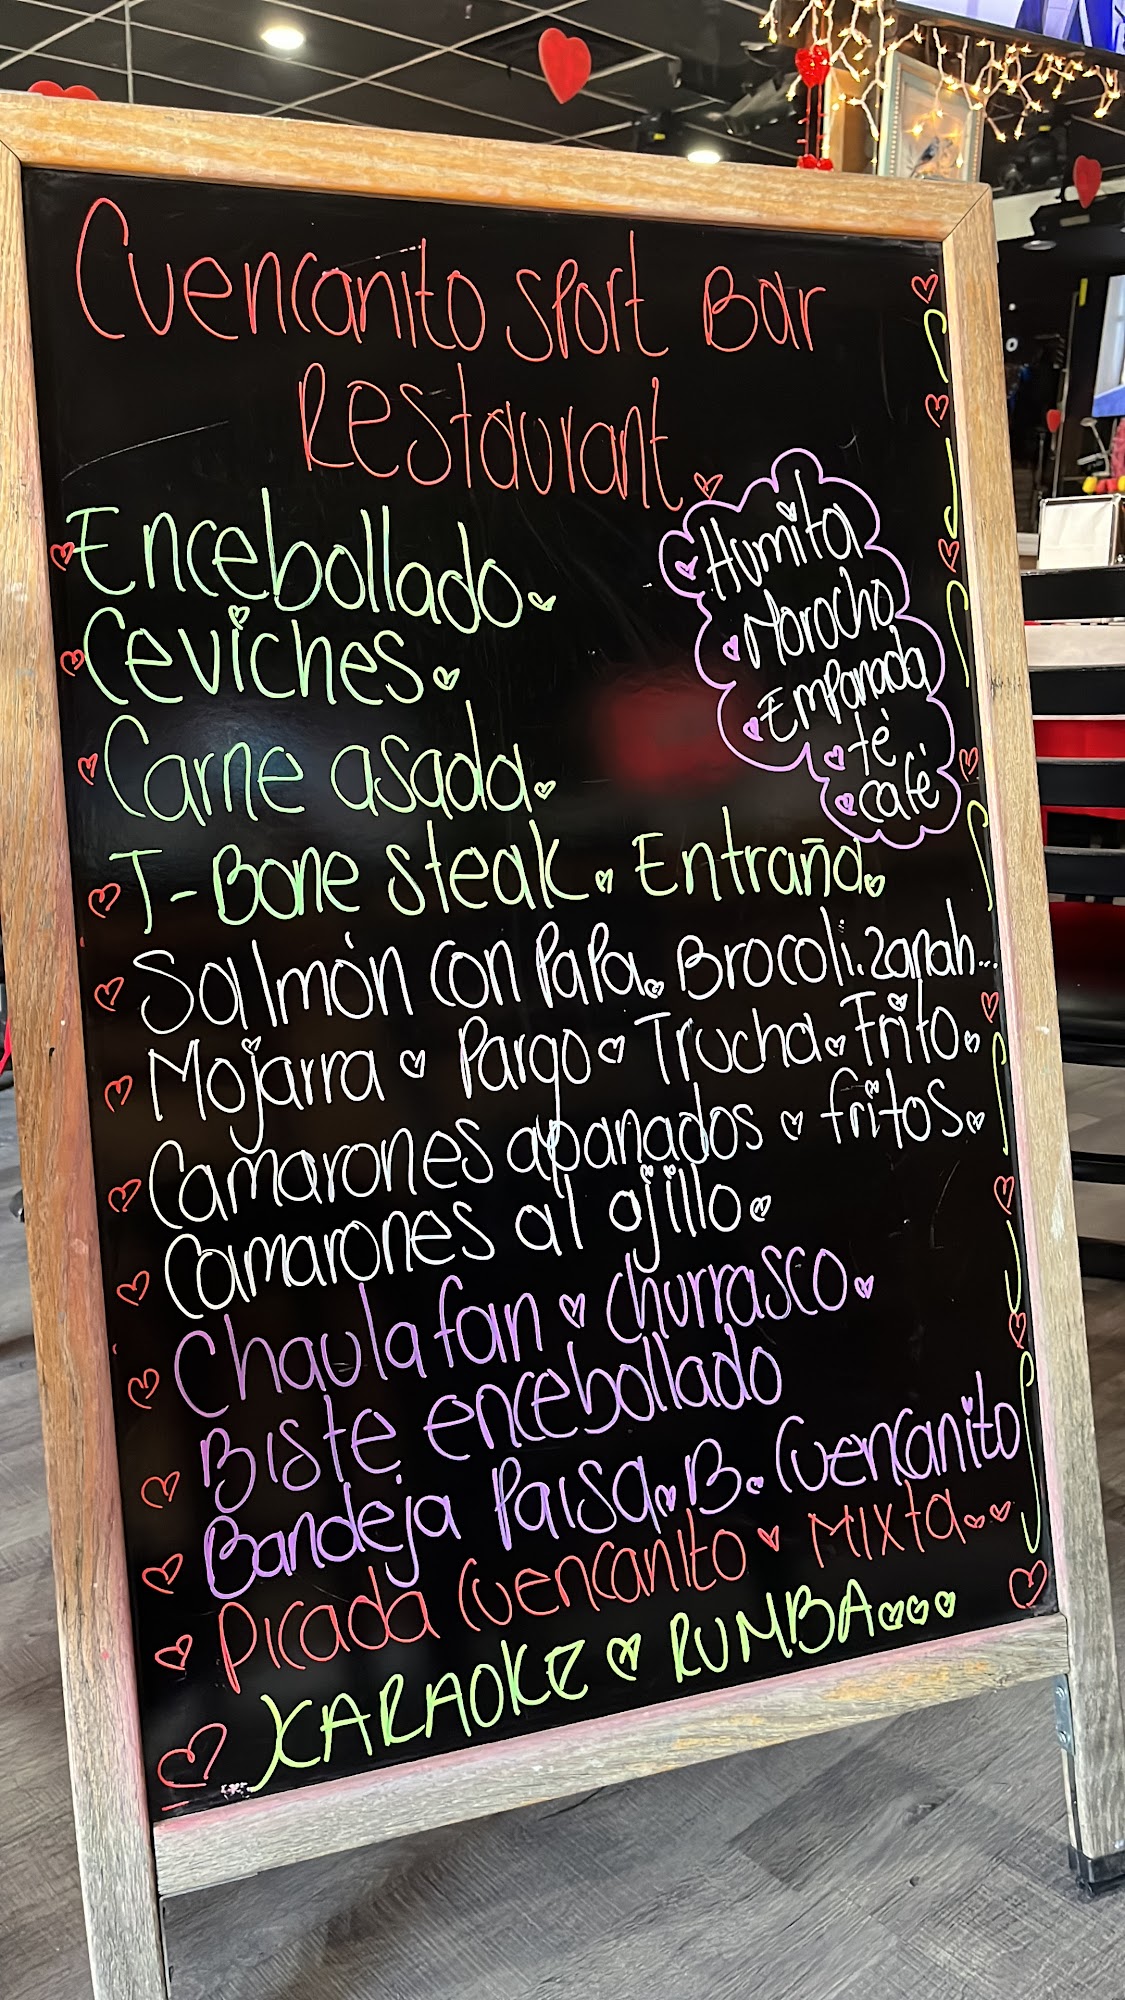 Cuencanito Sport Bar
Restaurant
Encebollado
Ceviches
Carne asada
T-Bone steak Entraña
Salmón con Papa Brocoli. Zanah...
Mojarra Pargo Trucha Frito
Camarones apanados fritos
Camarones al ajillo
Chaulafan Churrasco
Biste encebollado
Bandeja Paisa B. Cuencanito
Picada Cuencanito Mixta
KARAOKE RUMBA
Humita
Morocho
Empanada
té
café